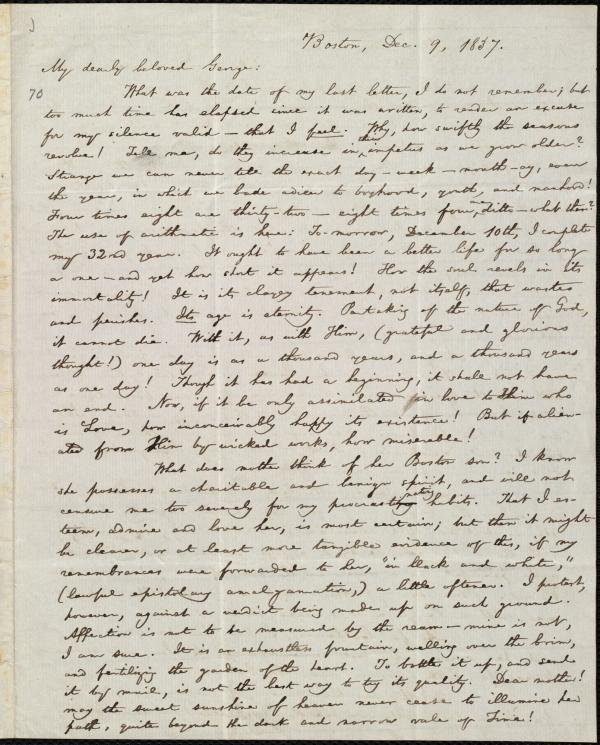 Boston, Dec. 9, 1837.
My dearly beloved George:
70
What was the date of my last letter, I do not remember; but
too much time has elapsed since it was written, to render an excuse
for my silence valid — that I feel. Why, how swiftly the seasons
revolve! Tell me, do they increase in their impetus as we grow older?
Strange we can never tell the exact day — week — month — ay, even
the year, in which we bade adieu to boyhood, youth, and manhood!
Four times eight are thirty-two — eight times four, ditto — what then?
The use of arithmetic is here: To-morrow, December 10th, I complete
my 32nd year. It ought to have been a better life for so long
a one — and yet how short it appears! How the soul revels in its
immortality! It is its clayey tenement, not itself, that wastes
and perishes. Its age is eternity. Partaking of the nature of God,
it cannot die. With it, as with Him, (grateful and glorious
thought!) one day is as a thousand years, and a thousand years
as one day! Though it has had a beginning, it shall not have
an end. Now, if it be only assimilated in love to Him who
is Love, how inconceivably happy its existence! But if alien-
ated from Him by wicked works, how miserable!
What does mother think of her Boston son? I know
she possesses a charitable and benign spirit, and will not
censure me too severely for my procrastinating habits. That I es-
teem, admire and love her, is most certain; but then it might
be clearer, or at least more tangible evidence of this, if my
remembrances were forwarded to her, "in black and white,"
(lawful epistolary amalgamation,) a little oftener. I protest,
however, against a verdict being made up on such ground.
Affection is not to be measured by the ream — mine is not,
I am sure. It is an exhaustless fountain, welling over the brim,
and fertilizing the garden of the heart. To bottle it up, and send
it by mail, is not the best way to try its quality. Dear mother!
may the sweet sunshine of heaven never cease to illumine her
path, quite beyond the dark and narrow vale of Time!